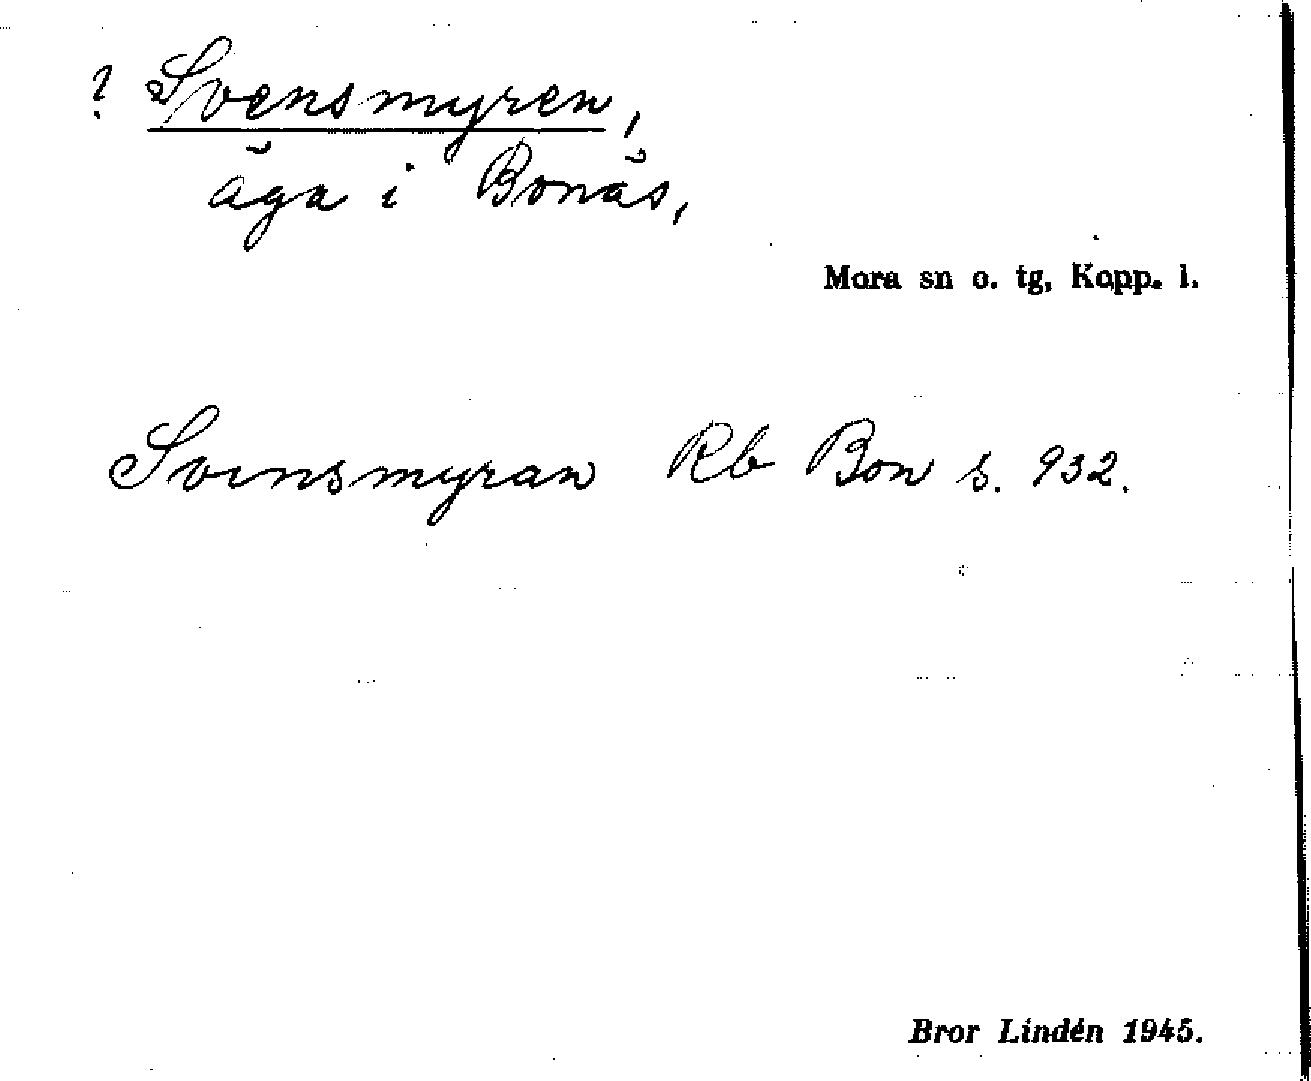 ? Svensmyren,
äga i Bonäs,
Mora sn o. tg, Kopp. l.
Svensmyran Rb Bon s. 932.
Bror Lindén 1945.